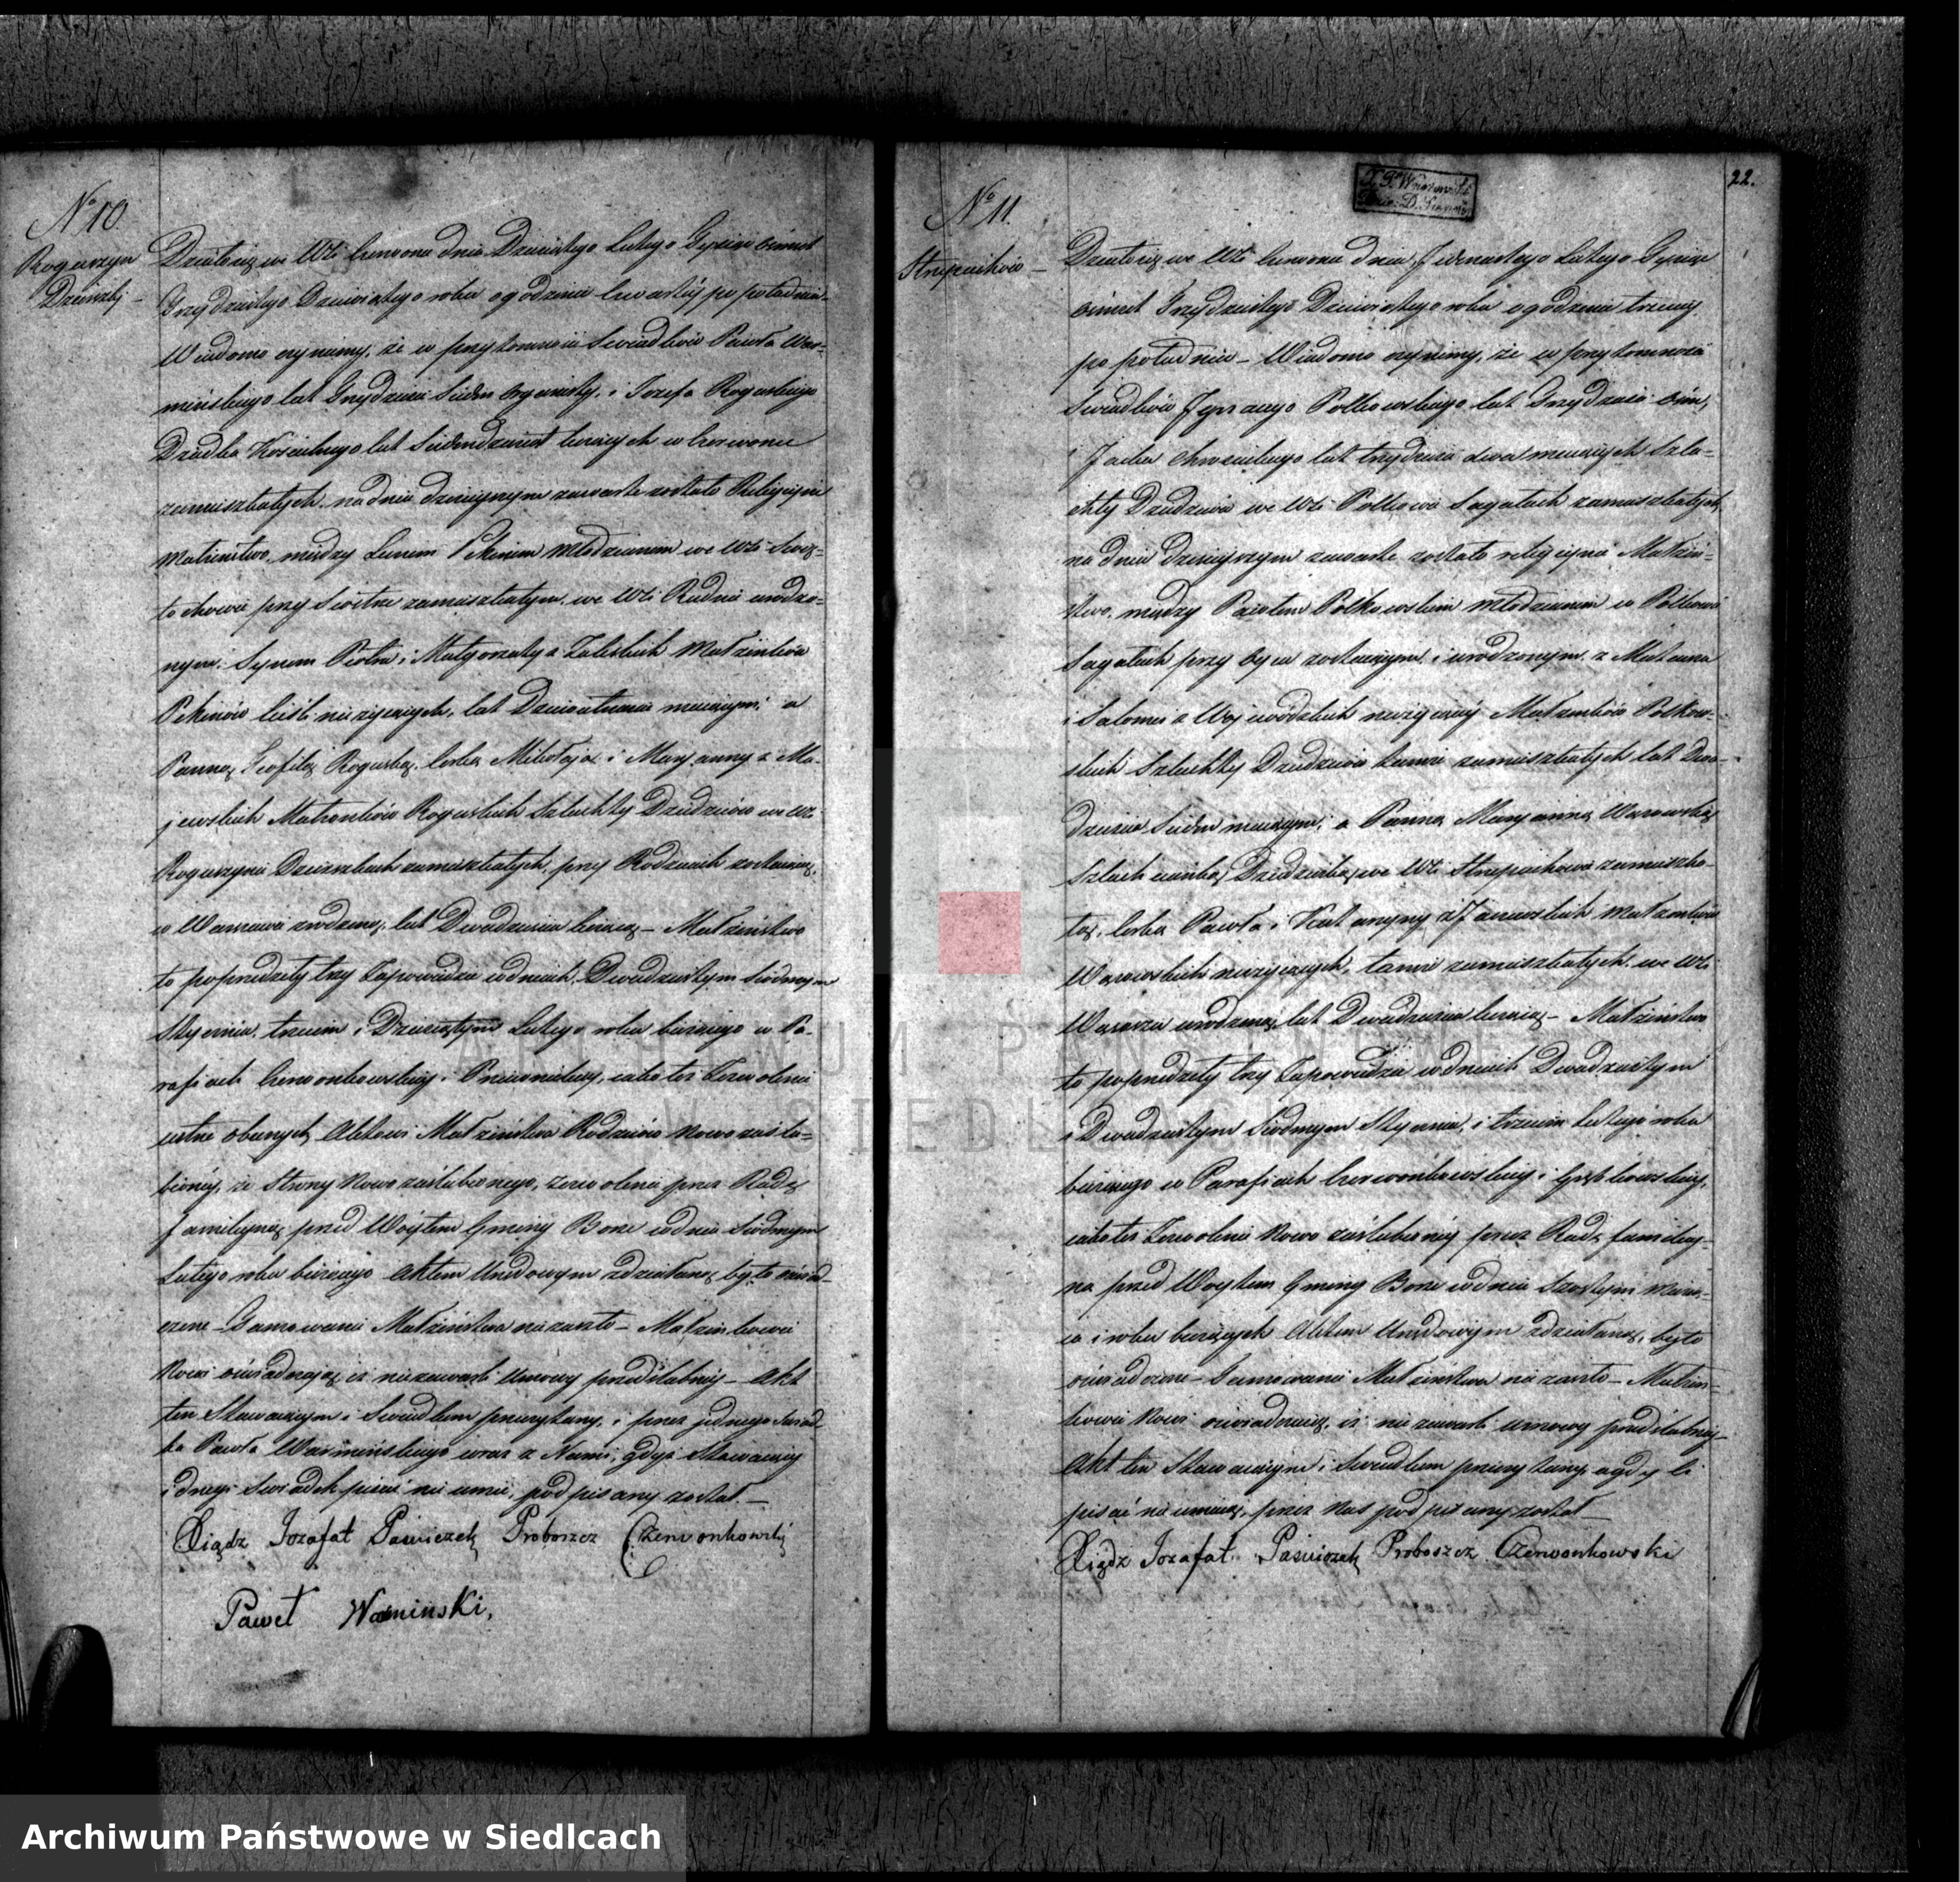 No 10.
Roguszyn
Działo się we Wsi Czerwonce dnia Dziesiątego Lutego Tysiąc ośmset
Trzydziestego Dziewiątego roku o godzinie czwartéj po południu
Wiadomo czynimy, że w przytomności Swiadków Pawła War-
mińskiego lat Trzydzieści Siedm Organisty, i Jozefa Roguskiego
Dziadka Kościelnego lat Siedmdziesiąt liczących w Czerwonce
zamieszkałych, na dniu dzisiejszym zawarte zostało Religijne
Małżeństwo, między Młodzianem we Wsi
przy Siostrze zamieszkałym, we Wsi Rudnie urodzo-
nym, Synem Piotra i Małgorzaty z Zaleskich Małżonków
nieżyjących, lat mającym, a
Panną Teofilą Roguską, Corką Mikołaja i Maryanny z Ma-
jewskich Małżonków Roguskich Szlachty Dziedziców we Wsi
Roguszynie zamieszkałych, przy Rodzicach zostającą,
w zrodzoną, lat Dwadzieścia liczącą – Małżeństwo
to poprzedziły trzy Zapowiedzie w dniach Dwudziestym Siódmym
Stycznia, trzecim i Dziesiątym Lutego roku bieżącego w Pa-
rafiach Czerwonkowskiéj i jako też Zezwolenie
ustne obecnych Aktowi Małżeństwa Rodziców Nowozaślu-
bionéj, ze Strony Nowozaślubionego, zezwolenie przez Radę
familijną przed Wójtem Gminy Borze w dniu Siódmym
Lutego roku bieżącego Aktem Urzędowym zdziałaną było oświad-
czone – Tamowanie Małżeństwa nie zaszło – Małżonkowie
Nowi oświadczają iż nie zawarli Umowy przedślubnéj – Akt
ten Stawającym i Swiadkom przeczytany, i przez jednego Swiad-
ka Pawła Warmińskiego wraz z Nami, gdyż Stawający
i drugi Swiadek pisać nie umie, podpisany został. –
Xiądz Jozafat Proboszcz Czerwonkowski
Paweł Warminski,
22.
No 11.
Działo się we Wsi Czerwonce dnia Lutego Tysiąc
ośmset Trzydziestego Dziewiątego roku o godzinie trzeciéj
po południu – Wiadomo czynimy, że w przytomności
Swiadków Ignacego Polkowskiego lat Trzydzieści ośm,
i lat trzydzieści dwa mających Szla-
chty Dziedziców we Wsi Polkowie Sagałach zamieszkałych,
na dniu dzisiejszym zawarte zostało religijne Małżeń-
stwo, między Pawłem Polkowskim Młodzianem w Polkowie
Sagałach przy Ojcu zostającym, i urodzonym z Mateusza
i Salomei z Wojewódzkich nieżyjącéj Małżonków Polkow-
skich Szlachty Dziedziców tamże zamieszkałych lat Dwa-
dzieścia Siedm mającym, a Panną Maryanną Wąsowską
Szlachcianką Dziedziczką we Wsi zamieszka-
łą, Corką Pawła i Katarzyny z Małżonków
Wąsowskich nieżyjących, tamże zamieszkałych, we Wsi
urodzoną, lat Dwadzieścia liczącą – Małżeństwo
to poprzedziły trzy Zapowiedzie w dniach Dwudziestym
i Dwudziestym Siódmym Stycznia, i trzecim Lutego roku
bieżącego w Parafiach Czerwonkowskiéj i Grębkowskiéj,
jako też Zezwolenie Nowo zaślubionéj przez Radę familij-
ną przed Wójtem Gminy Borze w dniu Szóstym Miesią-
ca i roku bieżących Aktem Urzędowym zdziałaną, było
oświadczone – Tamowanie Małżeństwa nie zaszło – Małżon-
kowie Nowi oświadczają, iż nie zawarli umowy przedślubnéj –
Akt ten Stawającym i Swiadkom przeczytany, a gdy Ci
pisać nie umieją, przez Nas podpisany został –
Xiądz Jozafat Proboszcz Czerwonkowski
ARCHIWUM PAŃSTWOWE
W SIEDLCACH
Archiwum Państwowe w Siedlcach